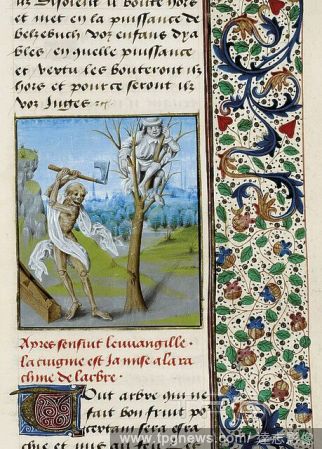 uz disoient il boute hors
et met en la puissance de
belzebuch voz enfans dy a
bles en quelle puissance
et vertu les bouteront ilz
hors et pour ce seront ilz
voz iuges
Apres sensiut leuuangille
la cuignie est ia mise a la ra
chine de larbre
Tout arbre qui ne
fait bon fruit po
certain sera tra
www.tpgnews.com